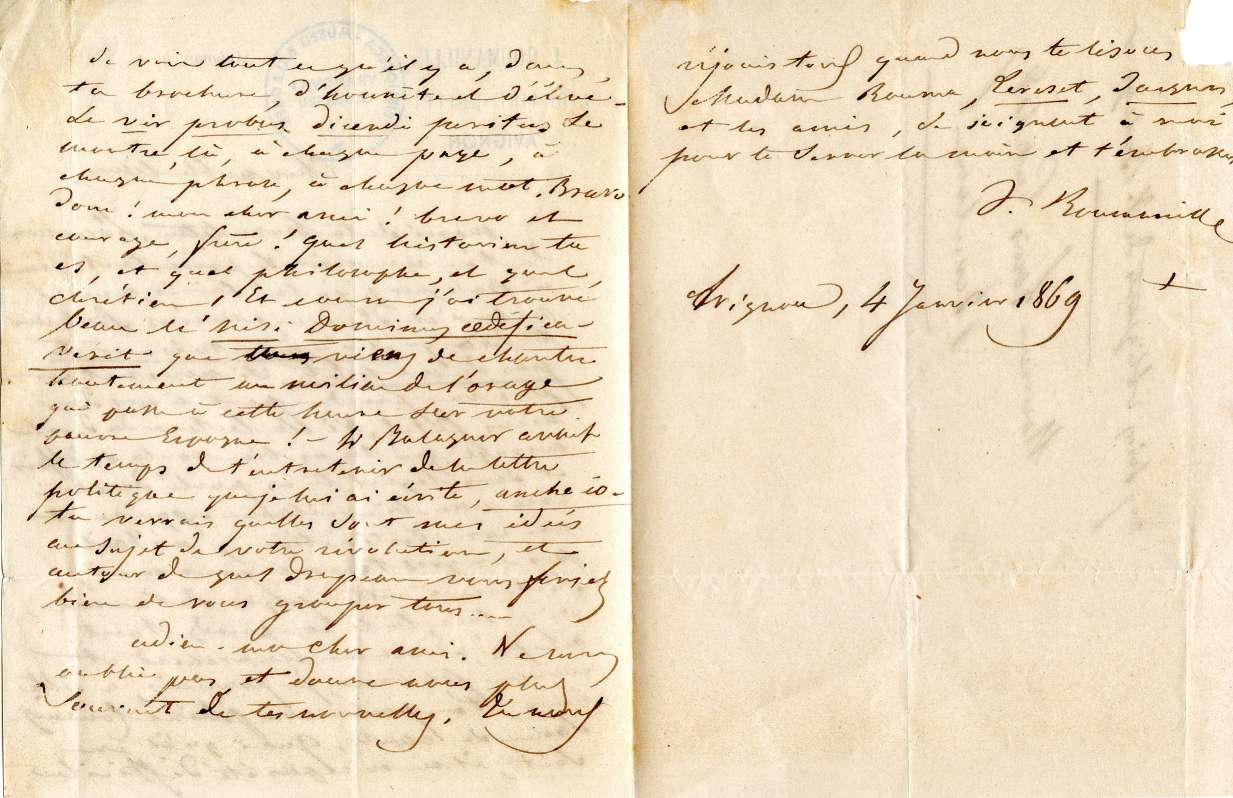 de voir tout ce qu'il y a, dans
ta brochure, d'honnête et d'élevé.
Le vir probus dicendi peritus se
montre, là, à chaque page, à
chaque phrase, à chaque mot. Bravo
donc! mon cher ami! bravo et
courage, frère! Quel historien tu
es, et quel philosophe, et quel
chrétien! Et comme j'ai trouvé
beau le Nisi Dominus ædifica-
verit que tu viens de chanter
hautement au milieu de l'orage
qui passe à cette heure sur votre
pauvre Espagne! – Si Balaguer avait
le temps de t'entretenir de la lettre
politique que je lui ai écrite,
tu verrais quelles sont mes idées
au sujet de votre révolution, et
autour de quel drapeau vous feriez
bien de vous grouper tous....
adieu. mon cher ami. Ne nous
oublie pas et donne nous plus
souvent de tes nouvelles. Tu nous
réjouis tous quand nous te lisons
Madame Rouma, Tereset,
et les amis, se joignent à moi
pour te serrer la main et t'embrasser
J. Roumanille
Avignon, 4 Janvier 1869
AVIGNON